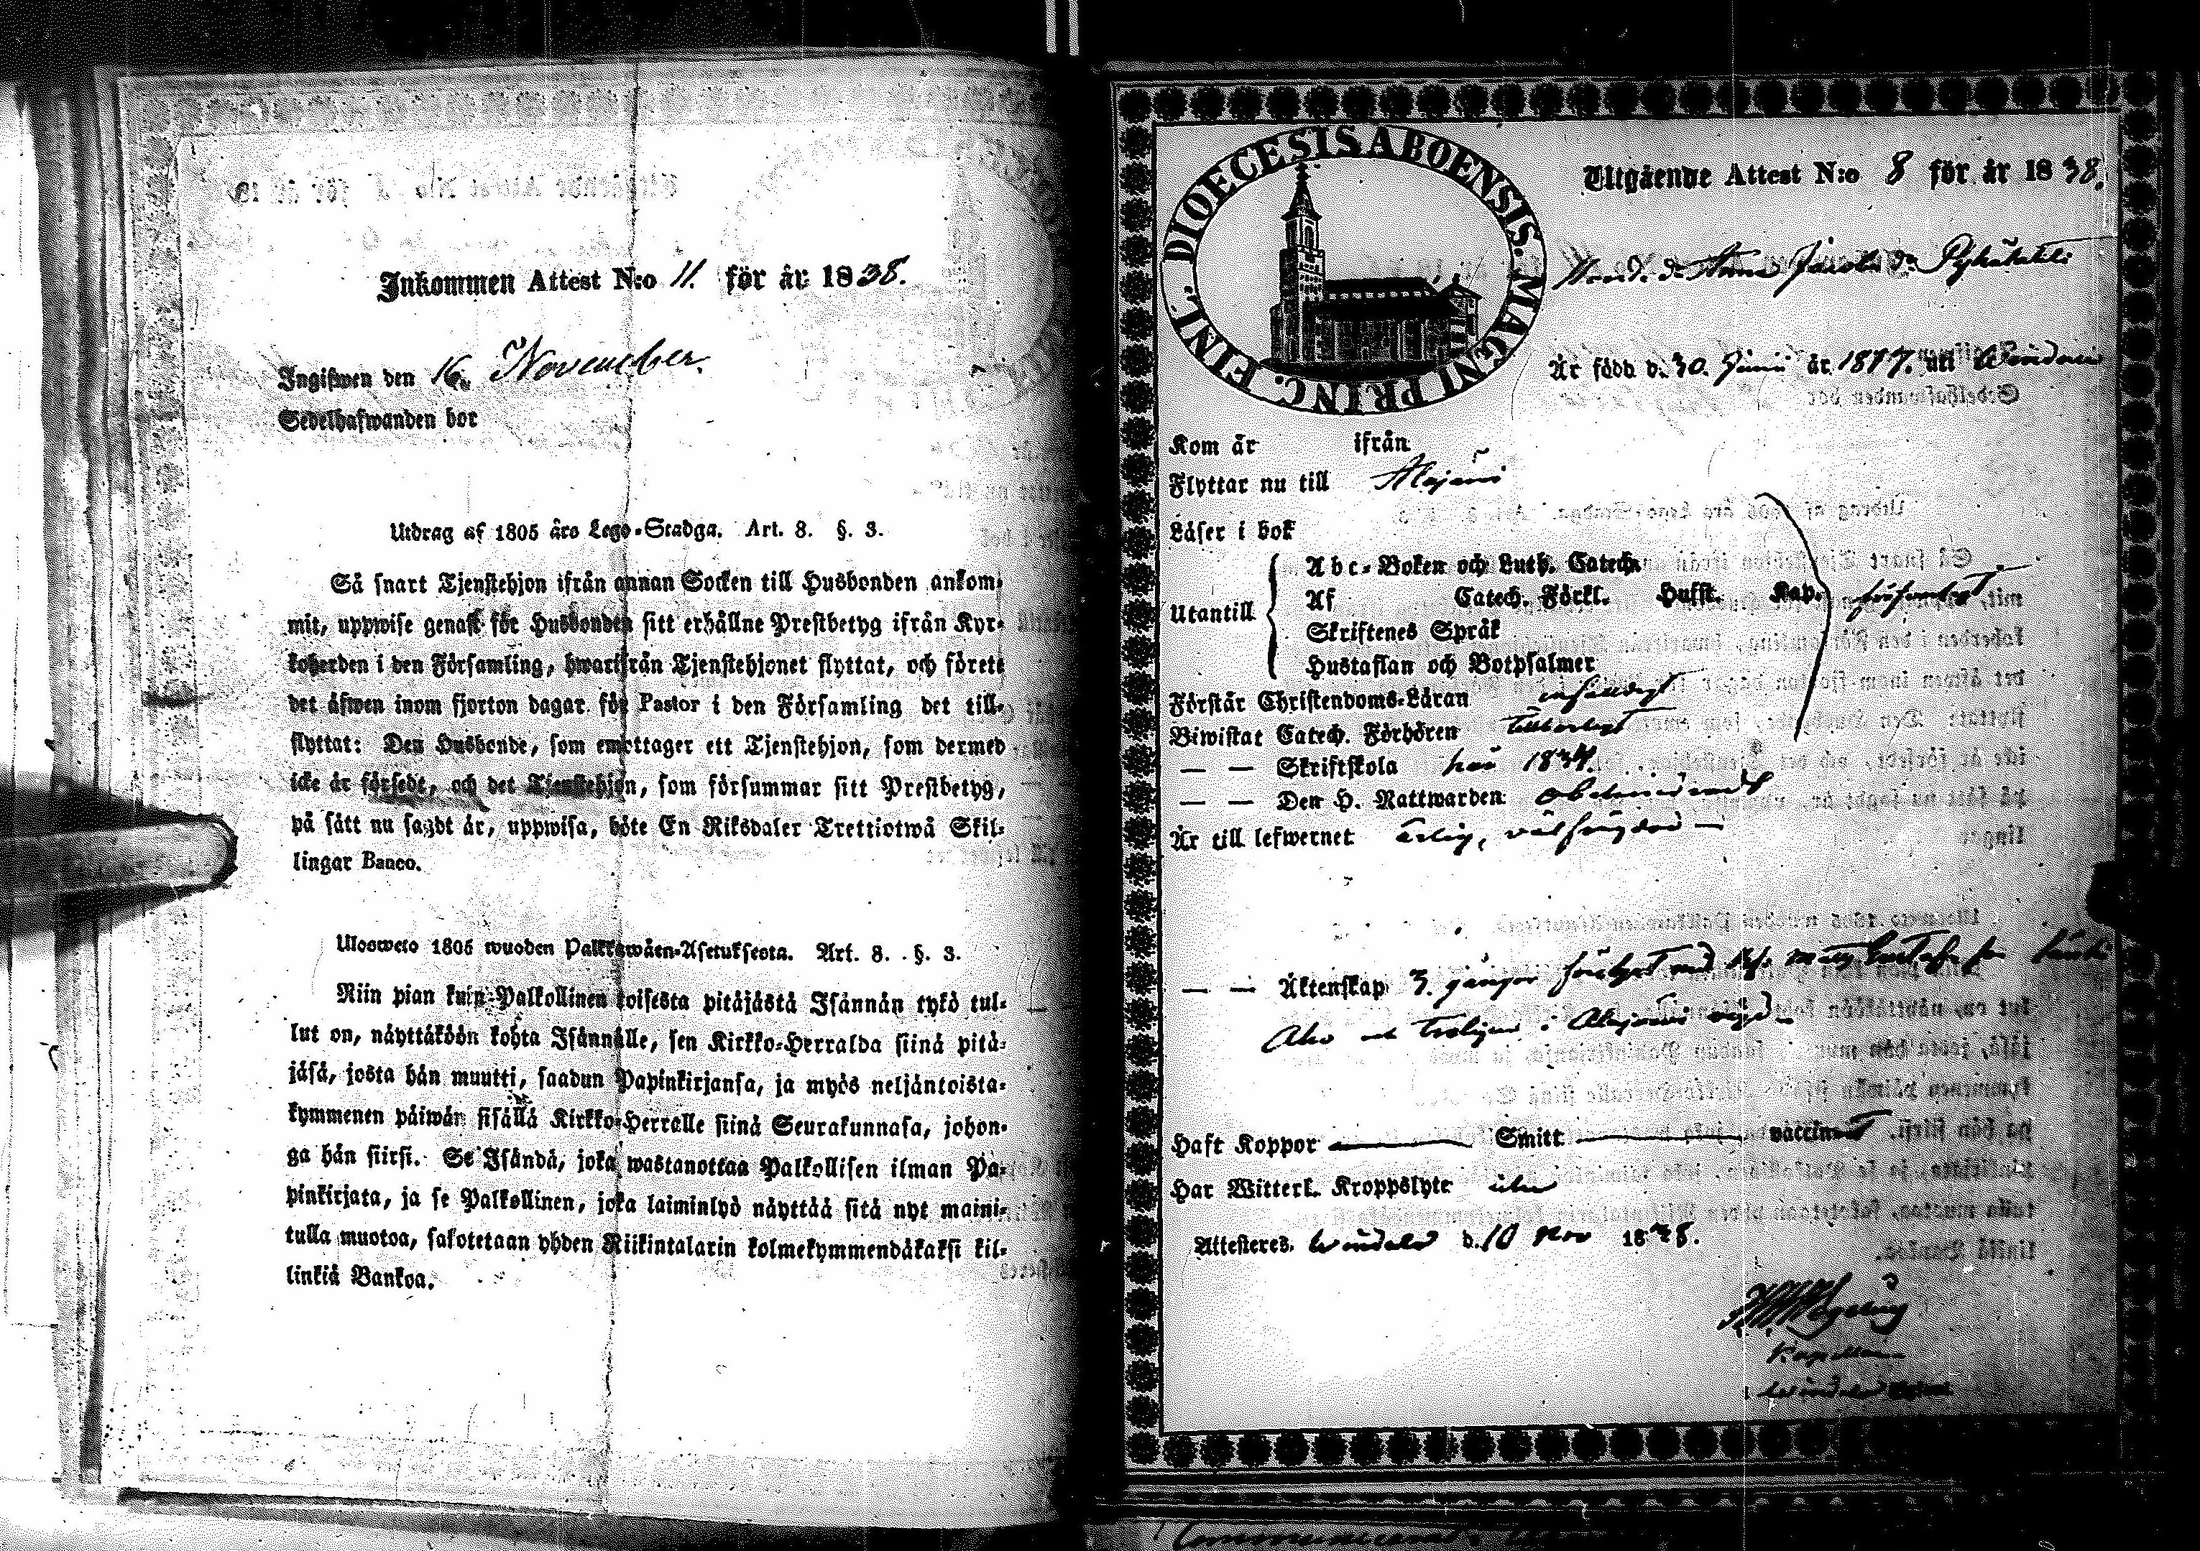 Inkommen Attest N:o 11. för år 1838.
Ingifwen den 16. November.
Sedelhafwanden bor
Utdrag af 1805 års Lego-Stadga. Art. 8. §. 3.
Så snart Tjenstehjon ifrån annan Socken till Husbonden ankom-
mit, uppwise genast för Husbonden sitt erhållne Prestbetyg ifrån Kyr-
koherden i den Församling, hwarifrån Tjenstehjonet flyttat, och förete
det äfwen inom fjorton dagar för Pastor i den Församling det till-
flyttat: Den Husbonde, som emottager ett Tjenstehjon, som dermed
icke är försedt, och det Tjenstehjon, som försummar sitt Prestbetyg,
på sätt nu sagdt är, uppwisa, böte En Riksdaler Trettiotwå Skil-
lingar Banco.
Ulosweto 1805 wuoden Palkkawäen-Asetuksesta. Art. 8. §. 3.
Niin pian kuin Palkollinen toisesta pitäjästä Isännän tykö tul-
lut on, näyttäköön kohta Isännälle, sen Kirkko-Herralda siinä pitä-
jäsä, josta hän muutti, saadun Papinkirjansa, ja myös neljäntoista-
kymmenen päiwän sisällä Kirkko-Herralle siinä Seurakunnasa, johon-
ga hän siirsi. Se Isändä, joka wastanottaa Palkollisen ilman Pa-
pinkirjata, ja se Palkollinen, joka laiminlyö näyttää sitä nyt maini-
tulla muotoa, sakotetaan yhden Riikintalarin kolmekymmendäkaksi kil-
linkiä Bankoa.
DIOECESIS ABOENSIS. MAGNI PRINC. FINL.
Utgående Attest N:o 8 för år 1838.
Anna Jacobs dr
Är född d. 30. Junii år 1817. uti Windala
Kom år ifrån
Flyttar nu till Alajärvi
Läser i bok
Abc-Boken och Luth. Catech.
Utantill Af Catech. Förkl. Hufst. Kap. försvarligt
Skriftenes Språk
Hustaflan och Botpsalmer
Förstår Christendoms-Läran
Biwistat Catech. Förhören
— — Skriftskola här 1834.
— — Den H. Nattwarden obehindradt
Är till lefwernet ärlig, välfrägdad —
— — Äktenskap 3. gånger
i Alajärvi
Haft Koppor — Smitt — vaccinerad
Har Witterl. Kroppslyte
Attesteres. Windala d. 10 Nov 1838.
Kapellan